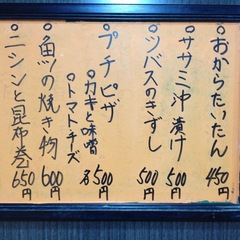 おからたいたん 450円
ササミ沖漬け 500円
ツバスのきずし 500円
プチピザ 各500円
カキと味噌
トマトチーズ
魚の焼き物 600円
ニシンと昆布巻 650円